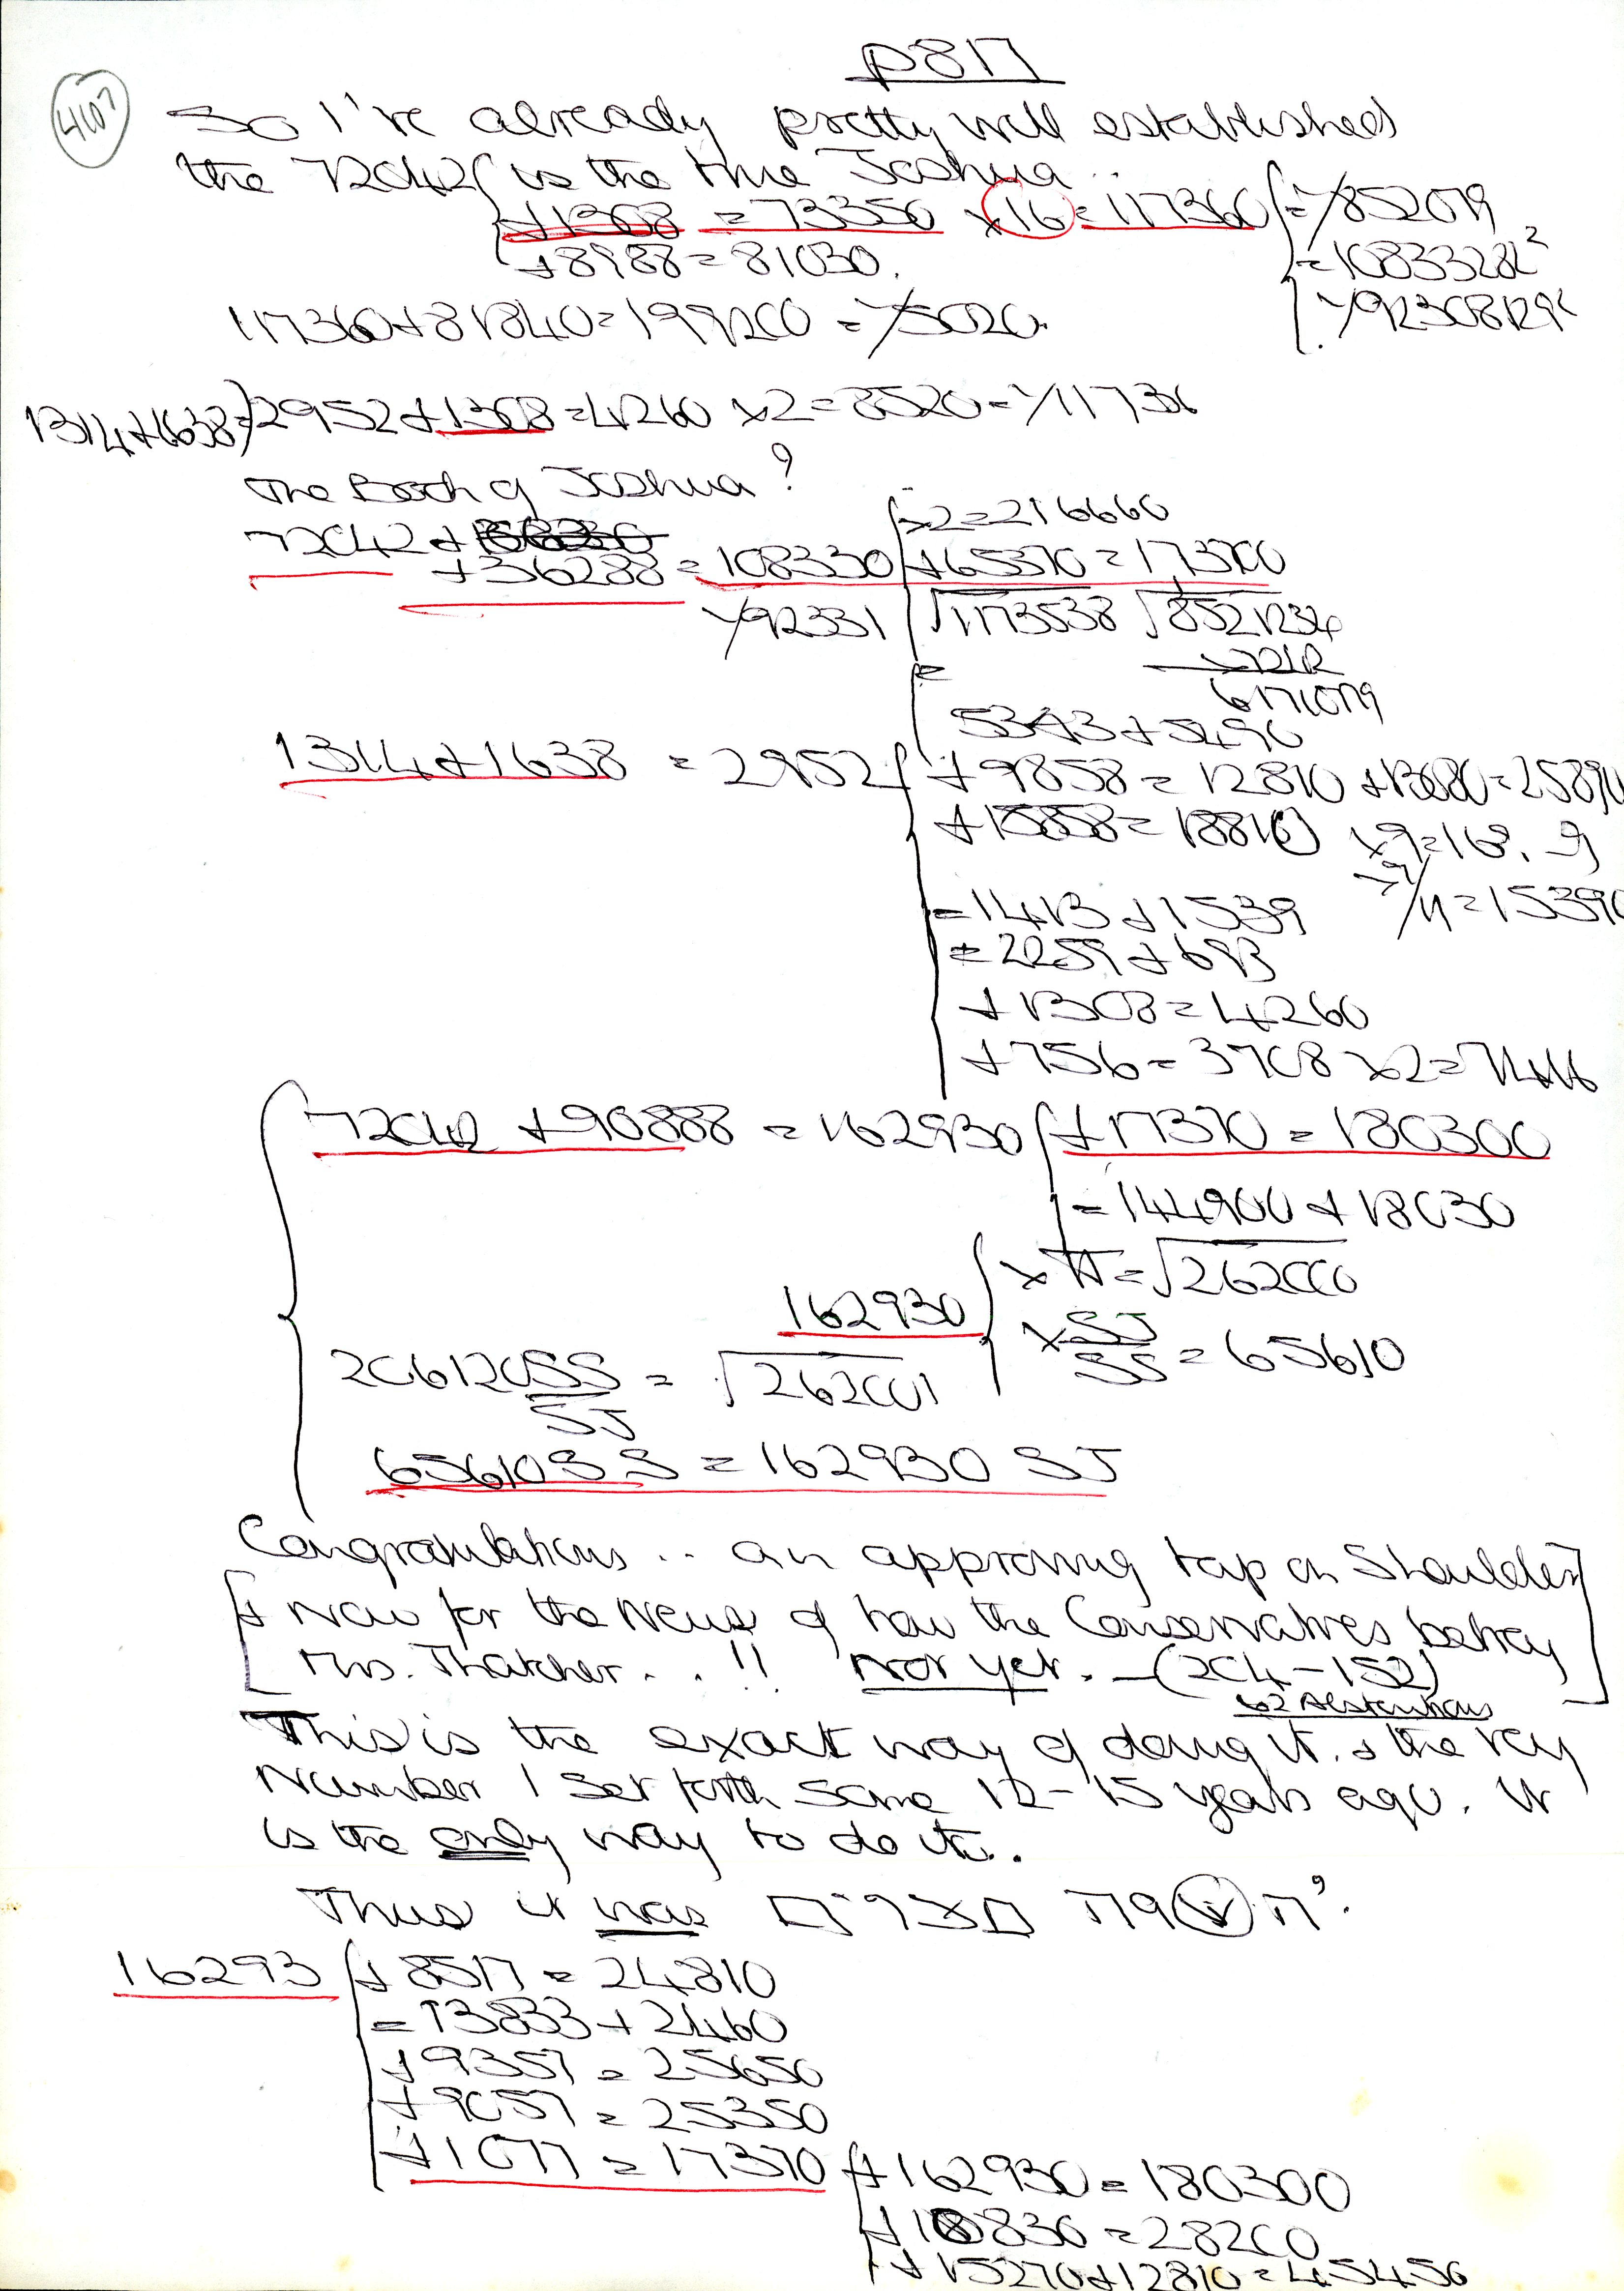 p817
4107
So I've already pretty well established
the 72042 is the true Joshua..
+1308 = 73350 x 16 = 117360 = 1/852079
+8988 = 81030.
117360 + 81840 = 199200 = 1/5020.
1314+1638 = 2952 + 1308 = 4260 x2 = 8520 = 1/11736
The Book of Joshua?
x2 = 216660
72042 + 36288 = 108330 + 65370 = 173700
1/92331 √1173538 √8521234
6171079
1314 + 1638 = 2952
+ 9858 = 12810 + 13080 = 25890
+ 15858 = 18810
= 1413 + 1539
= 2259 + 693
+ 1308 = 4260
+ 756 = 3708 x2 = 7416
72042 + 90888 = 162930 + 17370 = 180300
= 144900 + 18030
162930 x π = √262000
x SJ/SS = 65610
206120 SS/SJ = √262001
65610 SS = 162930 SJ
Congratulations .. an approving tap on shoulder
+ Now for the News of how the Conservatives betray
Mrs. Thatcher . . !! Not yet. – (204 – 152)
62 Abstentions
This is the exact way of doing it. & the very
Number I set forth some 12–15 years ago. It
is the only way to do it..
Thus it was
16293 + 8517 = 24810
= 13833 + 2460
+ 9357 = 25650
+ 9057 = 25350
+ 1077 = 17370 + 162930 = 180300
+ 10830 = 28200
+ 15270 + 12810 = 45450